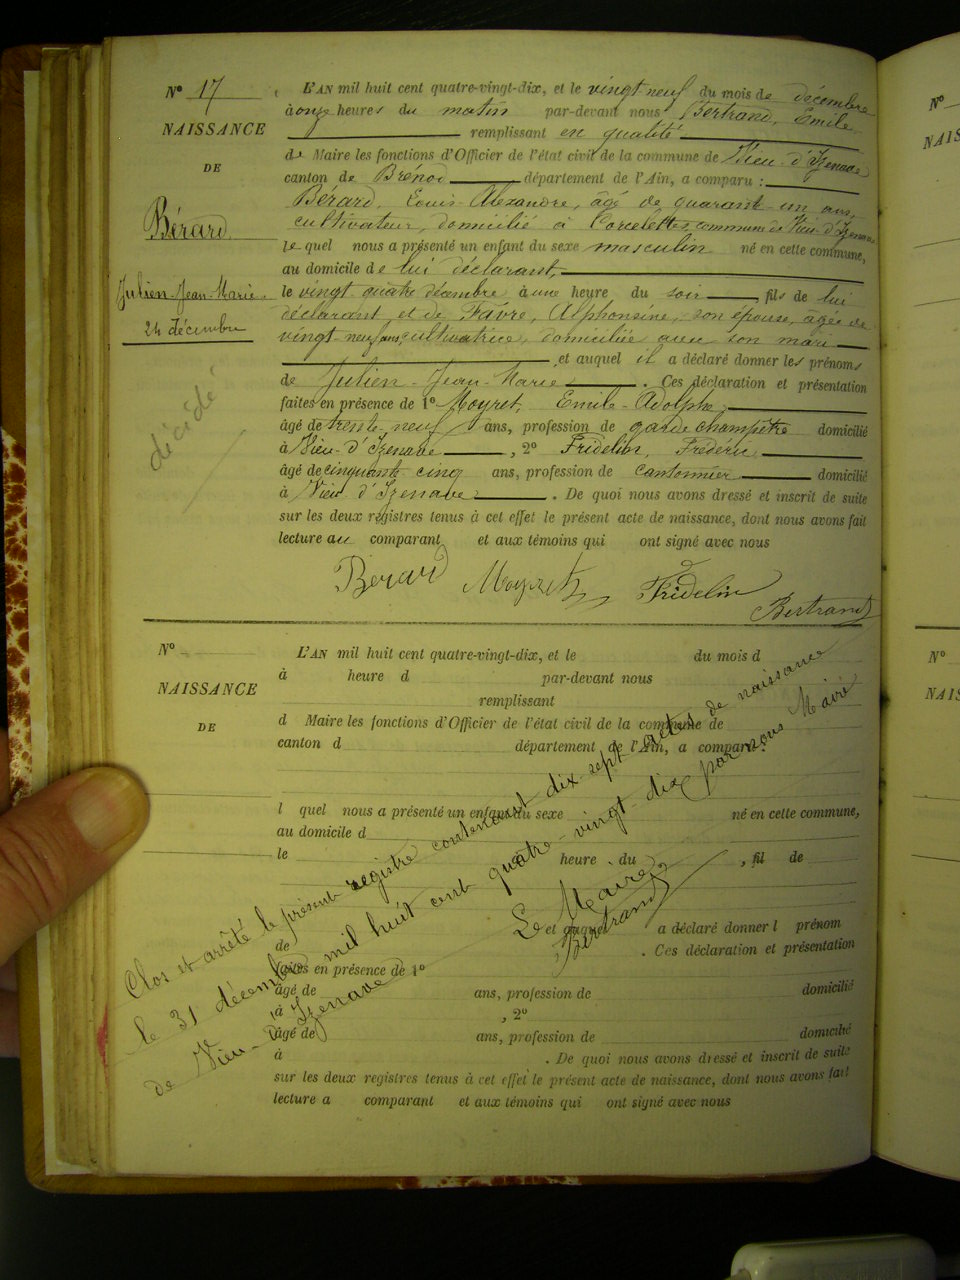 N° 17
NAISSANCE
DE
Bérard
Julien-Jean-Marie
24 décembre
décidé
L'AN mil huit cent quatre-vingt-dix, et le vingt neuf du mois de décembre
à onze heures du matin par-devant nous Bertrand, Emile
remplissant en qualité
de Maire les fonctions d'Officier de l'état civil de la commune de Vieu-d'Izenave
canton de Brénod département de l'Ain, a comparu :
Bérard, Louis-Alexandre, âgé de quarante un ans,
cultivateur, domicilié à Corcelettes commune de Vieu-d'Izenave
le quel nous a présenté un enfant du sexe masculin né en cette commune,
au domicile de lui déclarant,
le vingt quatre décembre à une heure du soir, fils de lui
déclarant et de Favre, Alphonsine, son épouse, âgée de
vingt neuf ans, cultivatrice, domiciliée avec son mari
et auquel il a déclaré donner les prénoms
de Julien-Jean-Marie. Ces déclaration et présentation
faites en présence de 1° Moyret, Emile-Adolphe,
âgé de trente-neuf ans, profession de garde champêtre domicilié
à Vieu-d'Izenave, 2° Fridelin, Frédéric
âgé de cinquante cinq ans, profession de cantonnier domicilié
à Vieu d'Izenave. De quoi nous avons dressé et inscrit de suite
sur les deux registres tenus à cet effet le présent acte de naissance, dont nous avons fait
lecture au comparant et aux témoins qui ont signé avec nous
Bérard Moyret Fridelin
Bertrand
N°
NAISSANCE
DE
L'AN mil huit cent quatre-vingt-dix, et le du mois d
à heure d par-devant nous
remplissant
d Maire les fonctions d'Officier de l'état civil de la commune de
canton d département de l'Ain, a comparu
l quel nous a présenté un enfant du sexe né en cette commune,
au domicile d
le heure du , fil de
et auquel a déclaré donner l prénom
de . Ces déclaration et présentation
faites en présence de 1°
âgé de ans, profession de domicilié
à , 2°
âgé de ans, profession de domicilié
à . De quoi nous avons dressé et inscrit de suite
sur les deux registres tenus à cet effet le présent acte de naissance, dont nous avons fait
lecture a comparant et aux témoins qui ont signé avec nous
Clos et arrêté le présent registre contenant dix-sept actes de naissance
le 31 décembre mil huit cent quatre-vingt-dix par nous Maire
de Vieu-d'Izenave
Le Maire,
Bertrand
N°
NAIS
N°
NAIS